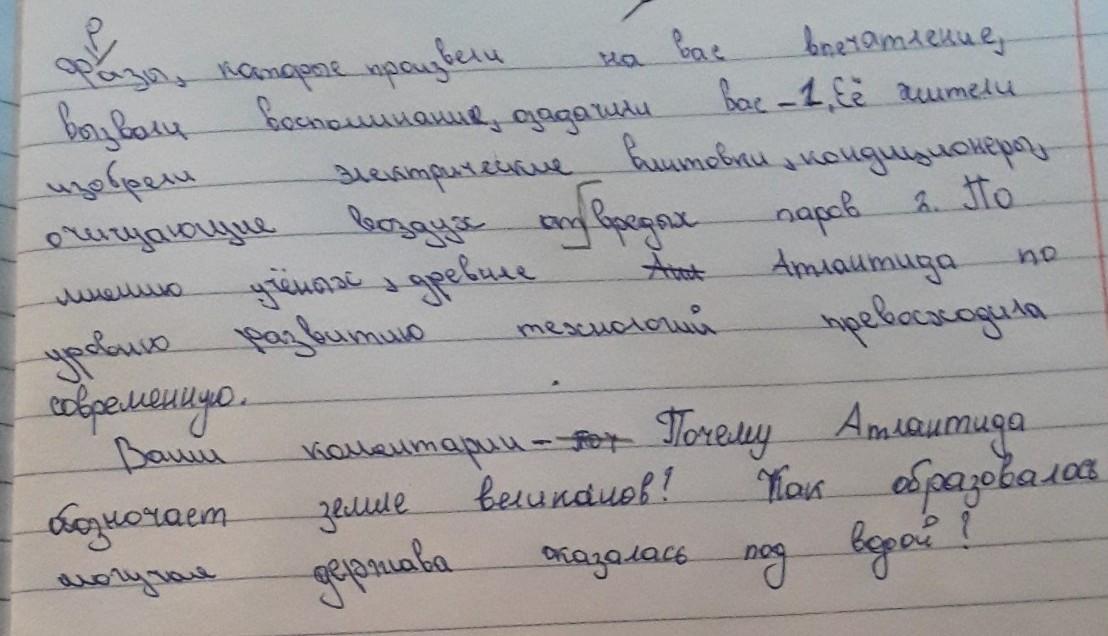 Фразы, которое произвели на вас впечатление,
возвали воспоминание, озадачили вас - 1. Её жители
изобрели электрические винтовки, кондиционеры,
очищающие воздух от вредых паров 2. По
мнению учёных, древняя Атлантида по
уровню развитию технологий превосходила
современную.
Ваши коментарии - Почему Атлантида
обозночает земле великанов! Как образовалась
могучая держава оказалась под водой?